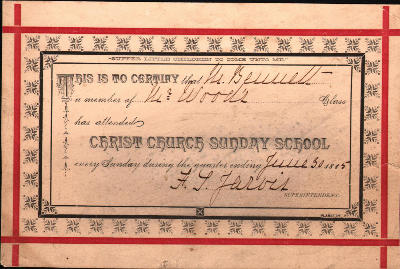 "SUFFER LITTLE CHILDREN TO COME UNTO ME."
THIS IS TO CERTIFY that M. Bennett
a member of Mr Woods Class
has attended
CHRIST CHURCH SUNDAY SCHOOL
every Sunday during the quarter ending June 30 1885
A. S. Jarvis
SUPERINTENDENT.